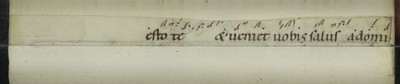 esto te & ueniet uobis salus a domi